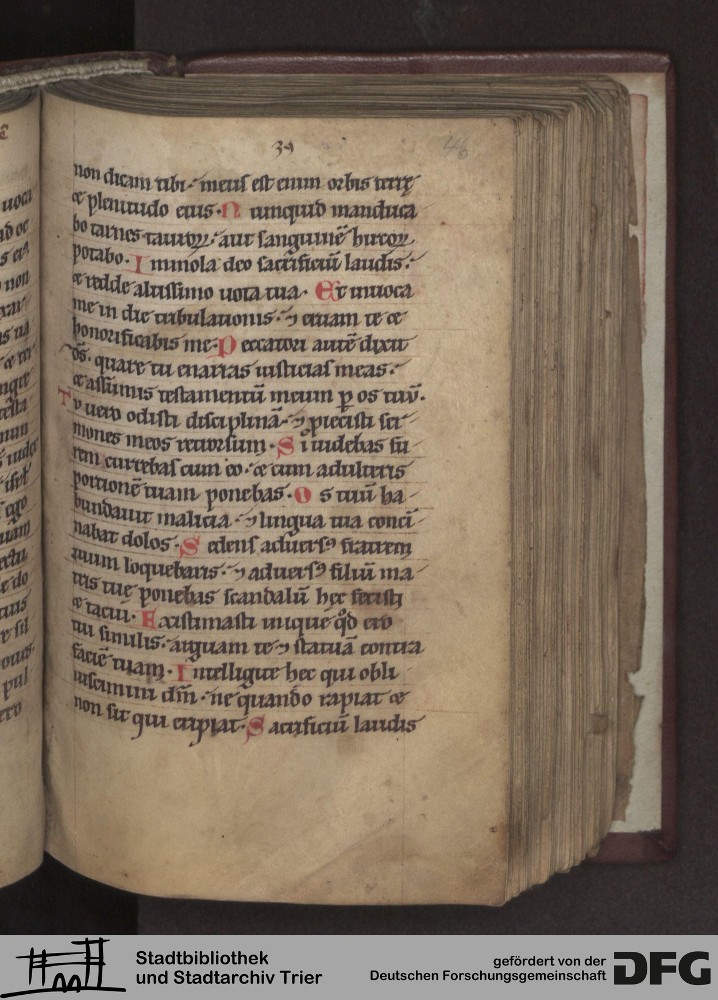 34
46
non dicam tibi · meus est enim orbis terrę
et plenitudo eius · Nunquid manduca
bo carnes tauroꝝ · aut sanguinē hircoꝝ
potabo · Immola deo sacrificiū laudis ·
et redde altissimo uota tua · Et inuoca
me in die tribulationis · ⁊ eruam te et
honorificabis me · Peccatori autē dixit
ds̄ · quare tu enarras iusticias meas ·
et assumis testamentū meum ꝑ os tuū ·
Tu uero odisti disciplinā · ⁊ proiecisti ser
mones meos retrorsum · Si uidebas fu
rem currebas cum eo · et cum adulteris
portionē tuam ponebas · Os tuū ha
bundauit malicia · ⁊ lingua tua conci
nabat dolos · Sedens aduersꝰ fratrem
tuum loquebaris · ⁊ aduersꝰ filiū ma
tris tuę ponebas scandalū hęc fecisti
et tacui · Existimasti inique qd̓ ero
tui similis · arguam te ⁊ statuā contra
faciē tuam · Intelligite hec qui obli
uiscimini dm̄ · ne quando rapiat et
non sit qui eripiat · Sacrificiū laudis
Stadtbibliothek
und Stadtarchiv Trier
gefördert von der
Deutschen Forschungsgemeinschaft
DFG